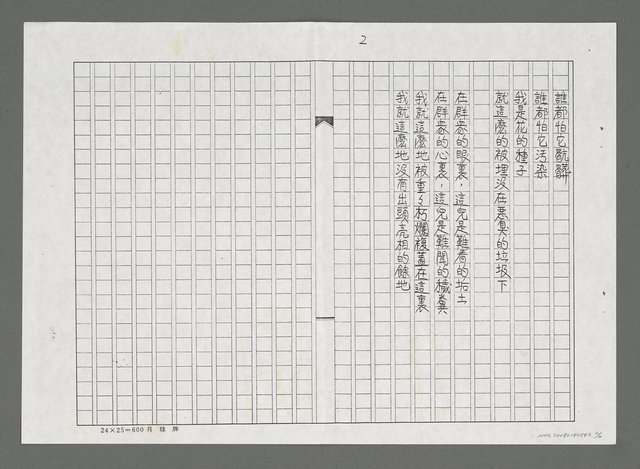 2
誰都怕它骯髒
誰都怕它污染
我是花的種子
就這麼的被埋沒在惡臭的垃圾下
在群眾的眼裏，這兒是難看的垢土
在群眾的心裏，這兒是難聞的穢糞
我就這麼地被重重朽爛覆蓋在這裏
我就這麼地沒有出頭亮相的餘地
24×25=600 月球牌